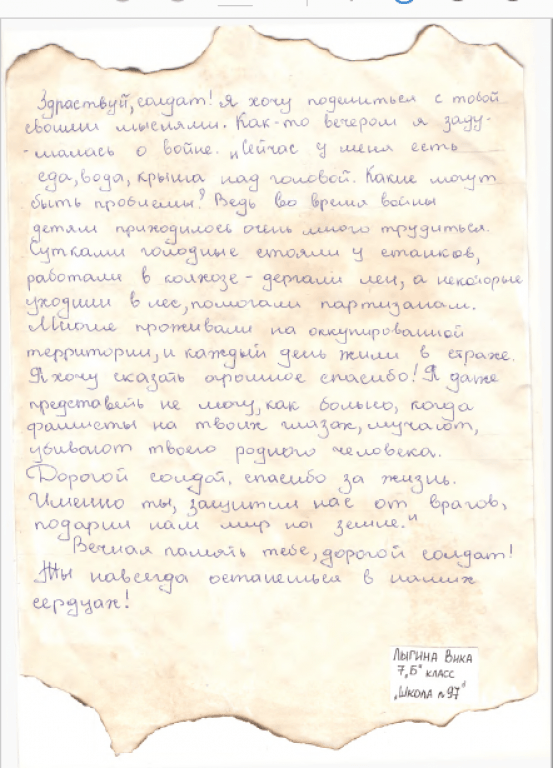 Здраствуй, солдат! Я хочу поделиться с тобой
своими мыслями. Как-то вечером я заду-
-малась о войне. „Сейчас у меня есть
еда, вода, крыша над головой. Какие могут
быть проблемы? Ведь во время войны
детям приходилось очень много трудиться.
Сутками голодные стояли у станков,
работали в колхозе - дергали лен, а некоторые
уходили в лес, помогали партизанам.
Многие проживали на оккупированной
территории, и каждый день жили в страхе.
Я хочу сказать огромное спасибо! Я даже
представить не могу, как больно, когда
фашисты на твоих глазах, мучают,
убивают твоего родного человека.
Дорогой солдат, спасибо за жизнь.
Именно ты, защитил нас от врагов,
подарил нам мир на земле."
Вечная память тебе, дорогой солдат!
Ты навсегда останешься в наших
сердцах!
Лыгина Вика
7 „Б" класс
„Школа №97"